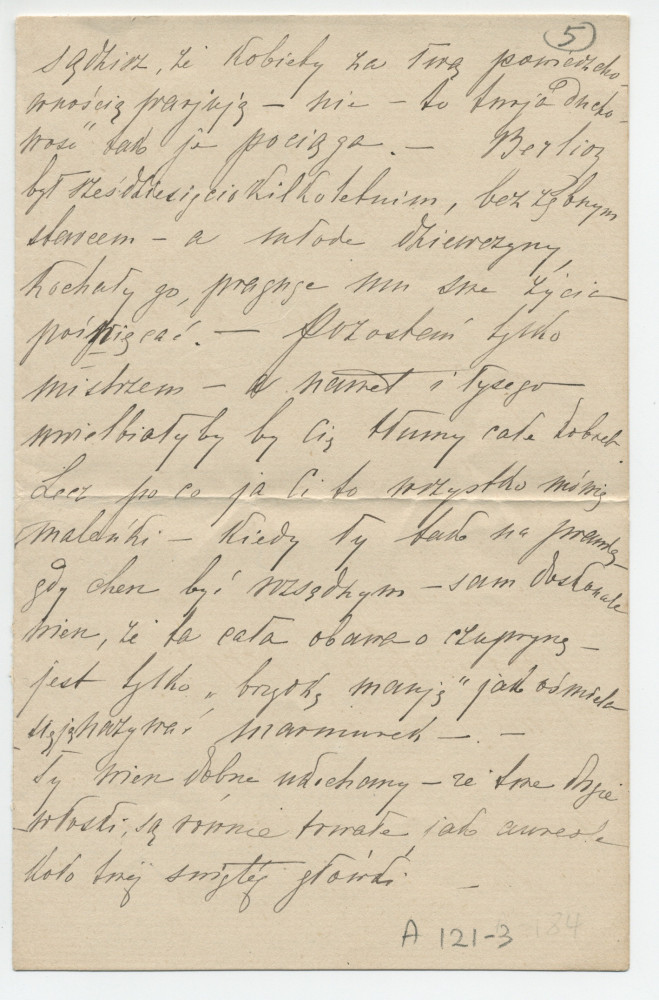 5
sądzisz, że kobiety za twą powierzcho-
wnością
 – nie – to twoja "ducho-
wość" tak je pociąga. – Berlioz
był sześćdziesięciokilkoletnim, bezzębnym
starcem – a młode dziewczyny,
kochały go, pragnąc mu swe życie
poświęcać. – Pozostań tylko
mistrzem – a nawet i łysego
uwielbiałyby by Cię tłumy całe kobiet.
Lecz po co ja Ci to wszystko mówię
maleńki – kiedy ty tak na prawdę
gdy chcesz być rozsądnym – sam doskonale
wiesz, że ta cała obawa o czuprynę –
jest tylko „brzydką manją" jak ośmiela
się ją nazywać marmurek – . –
Ty wiesz dobrze ukochany – że twe drogie
włoski, są równie trwałe, jak aureola
koło twej świętej główki –
A 121-3
184